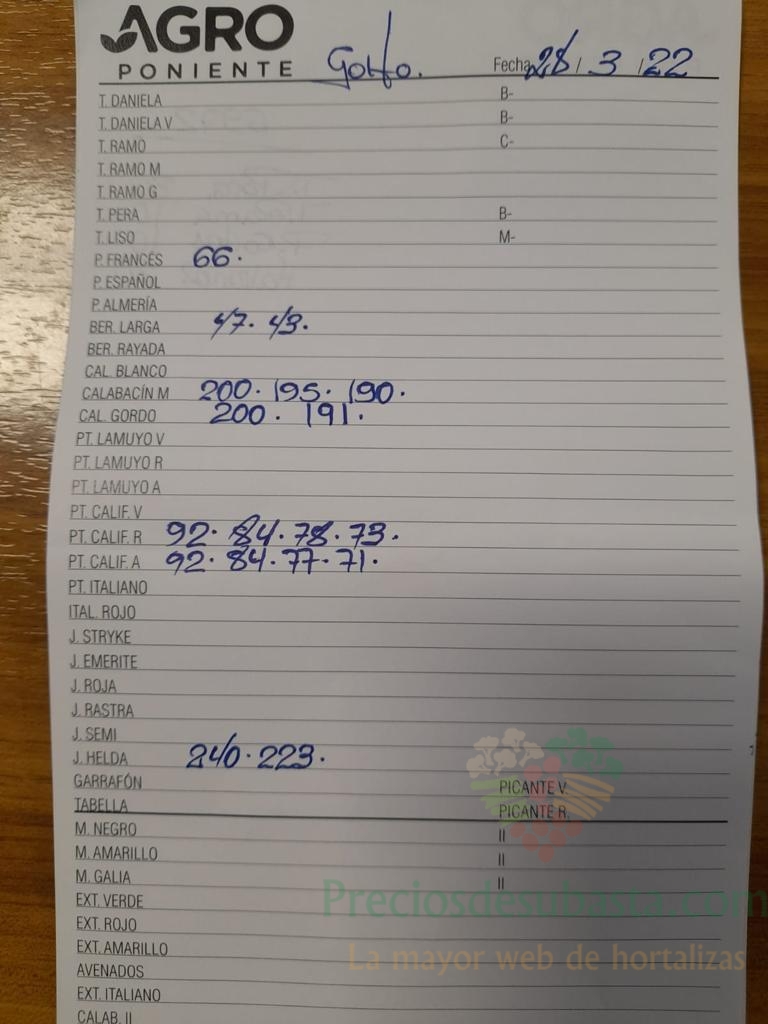 AGRO
PONIENTE Golfo. Fecha 28/3/22
T. DANIELA B-
T. DANIELA V B-
T. RAMO C-
T. RAMO M
T. RAMO G
T. PERA B-
T. LISO M-
P. FRANCÉS 66.
P. ESPAÑOL
P. ALMERÍA
BER. LARGA 47. 43.
BER. RAYADA
CAL. BLANCO
CALABACÍN M 200. 195. 190.
CAL. GORDO 200. 191.
PT. LAMUYO V
PT. LAMUYO R
PT. LAMUYO A
PT. CALIF. V
PT. CALIF. R 92. 84. 78. 73.
PT. CALIF. A 92. 84. 77. 71.
PT. ITALIANO
ITAL. ROJO
J. STRYKE
J. EMERITE
J. ROJA
J. RASTRA
J. SEMI
J. HELDA 240. 223.
GARRAFÓN PICANTE V.
TABELLA PICANTE R.
M. NEGRO II
M. AMARILLO II
M. GALIA II
EXT. VERDE Preciosdesubasta.com
EXT. ROJO
EXT. AMARILLO La mayor web de hortalizas
AVENADOS
EXT. ITALIANO
CALAB. II